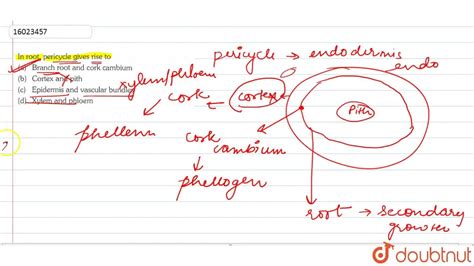 16023457
In root, pericycle gives rise to
(a) Branch root and cork cambium
(b) Cortex and pith
(c) Epidermis and vascular bundles
(d) Xylem and phloem
pericycle → endodermis
endo
xylem/phloem
cork ← cortex
Pith
phellem
cork
cambium
phellogen
root → secondary
growth
doubtnut